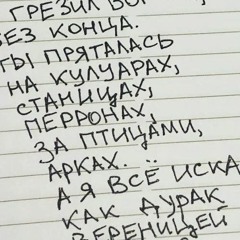 ГРЕЗИЛ
БЕЗ КОНЦА.
ТЫ ПРЯТАЛАСЬ
НА КУЛУАРАХ,
СТАНИЦАХ,
ПЕРРОНАХ,
ЗА ПТИЦАМИ,
АРКАХ.
А Я ВСЁ ИСКА
КАК ДУРАК
ВЕРЕНИЦЕЙ